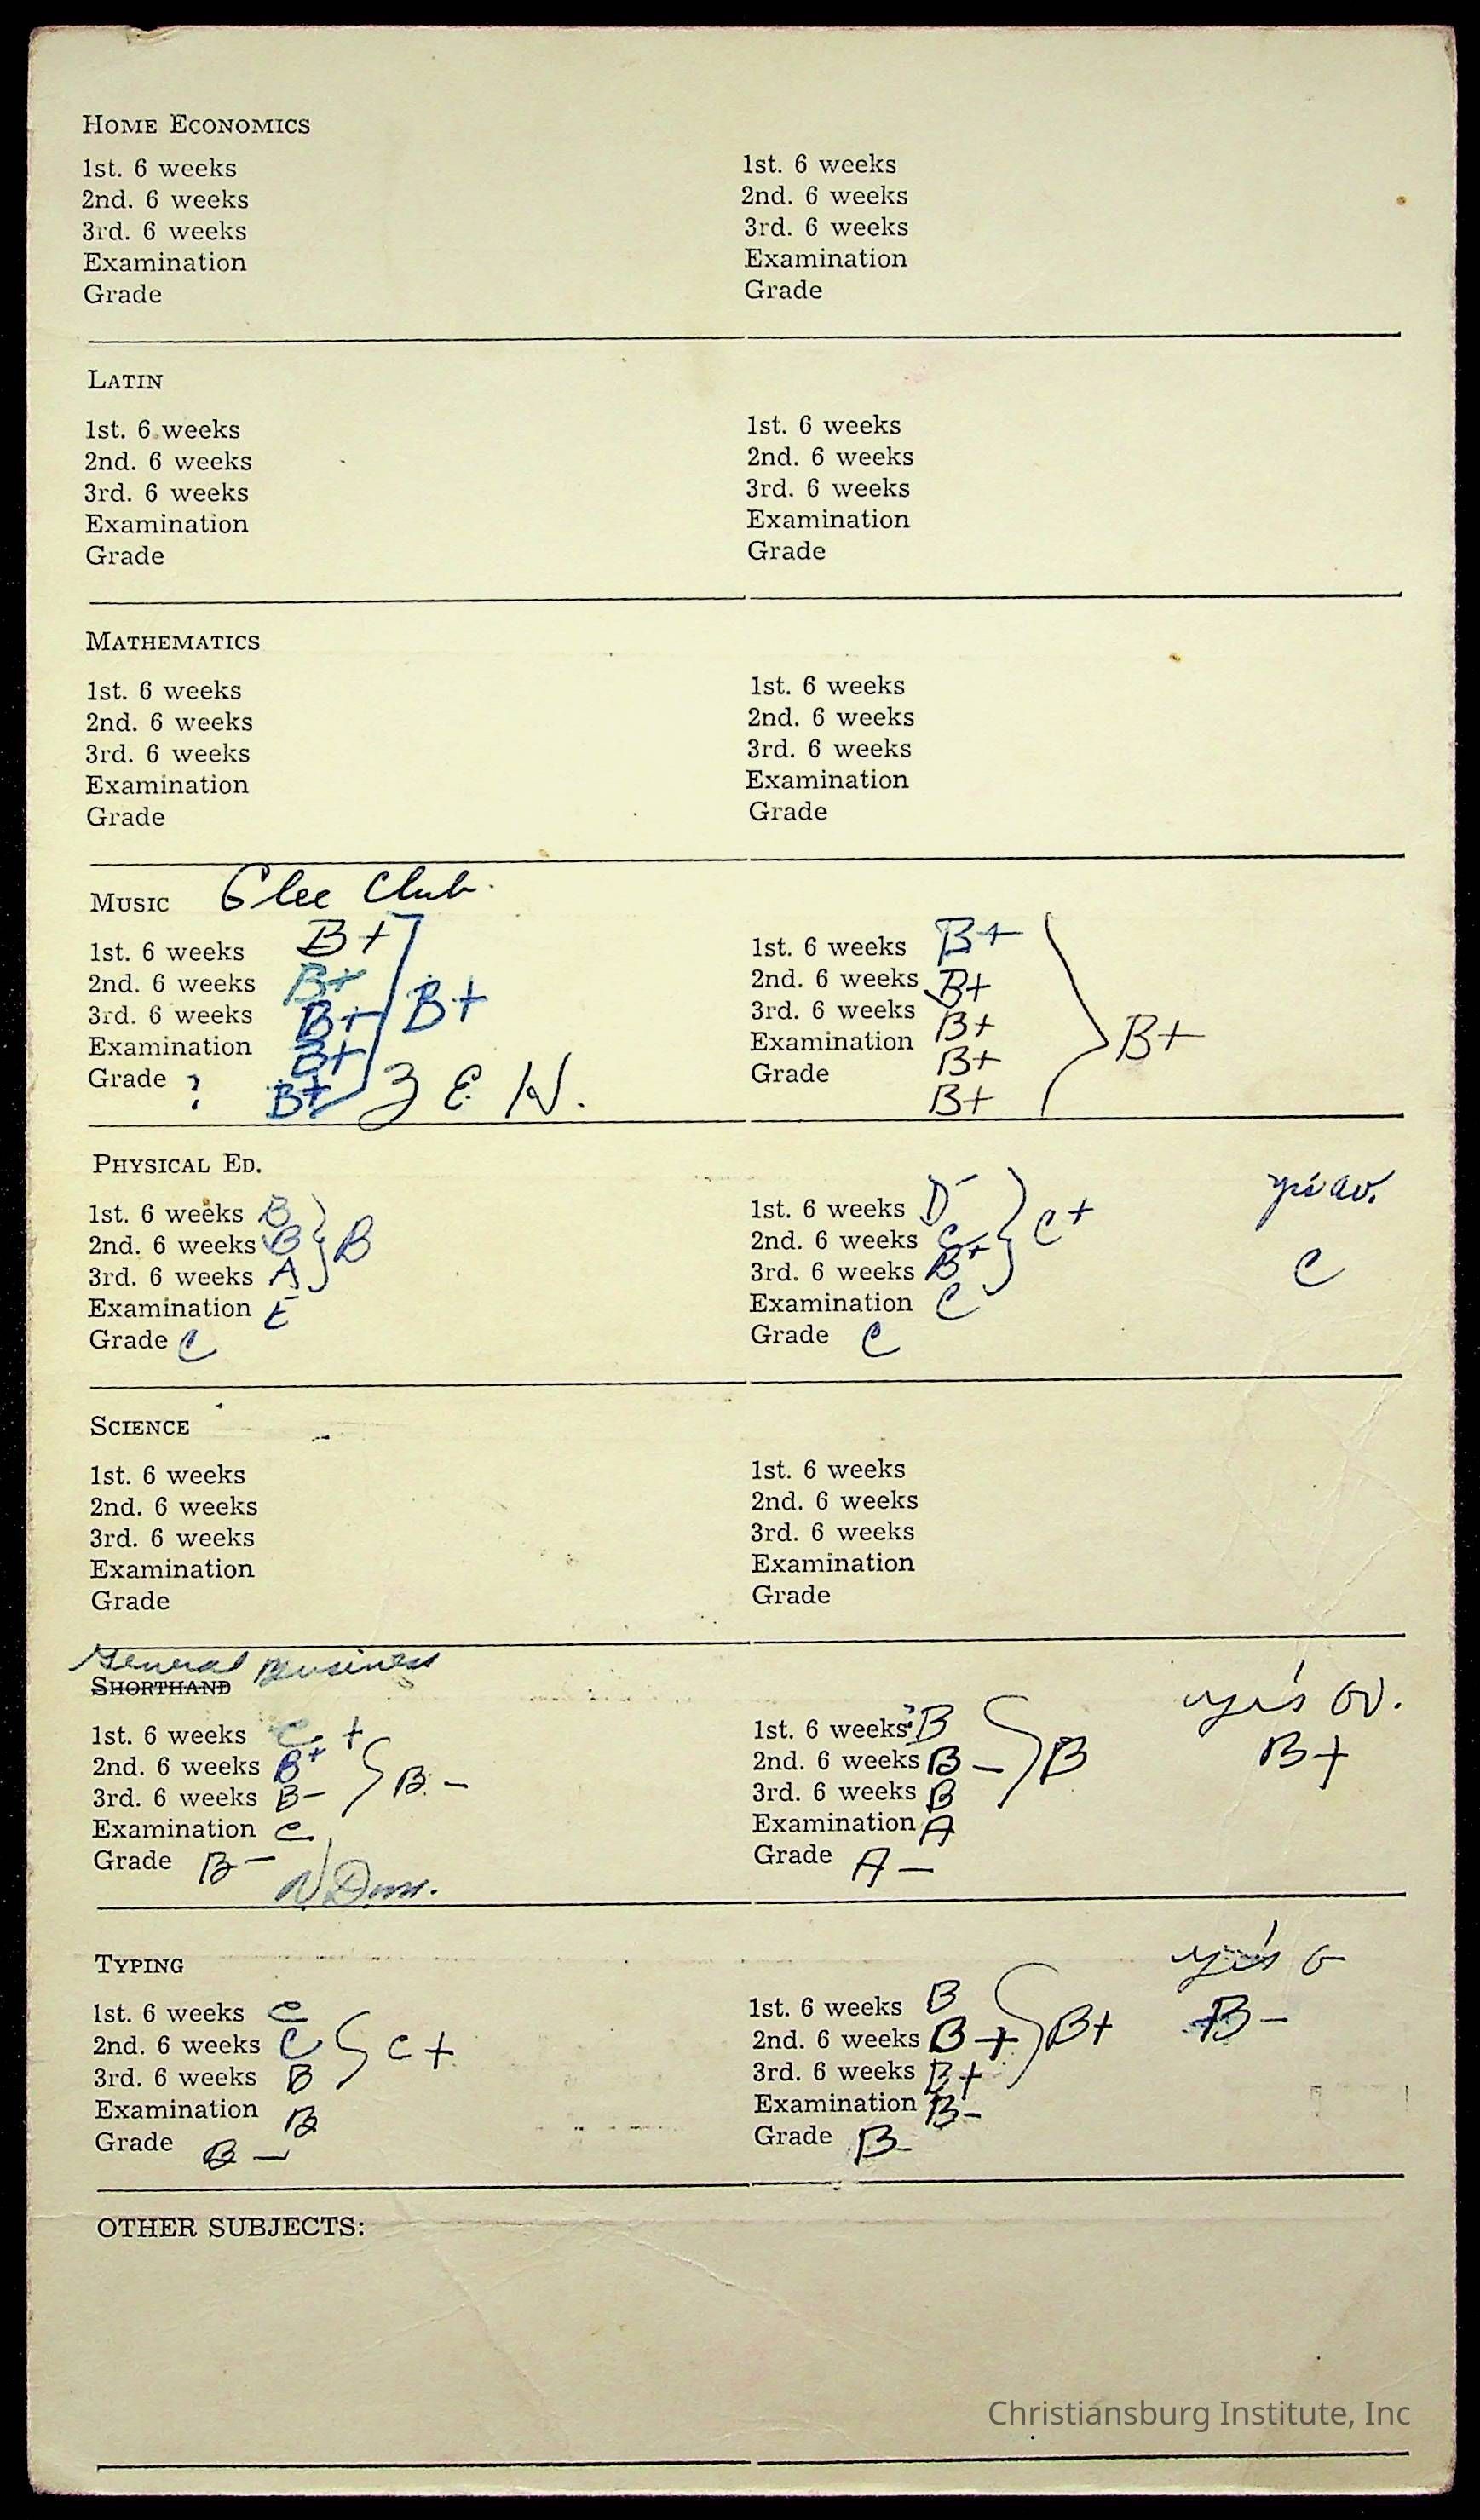 HOME ECONOMICS
1st. 6 weeks 1st. 6 weeks
2nd. 6 weeks 2nd. 6 weeks
3rd. 6 weeks 3rd. 6 weeks
Examination Examination
Grade Grade
LATIN
1st. 6 weeks 1st. 6 weeks
2nd. 6 weeks 2nd. 6 weeks
3rd. 6 weeks 3rd. 6 weeks
Examination Examination
Grade Grade
MATHEMATICS
1st. 6 weeks 1st. 6 weeks
2nd. 6 weeks 2nd. 6 weeks
3rd. 6 weeks 3rd. 6 weeks
Examination Examination
Grade Grade
MUSIC Glee Club.
1st. 6 weeks B+ 1st. 6 weeks B+
2nd. 6 weeks B+ B+ 2nd. 6 weeks B+
3rd. 6 weeks B+ 3rd. 6 weeks B+ B+
Examination B+ Examination B+
Grade ? B+ Z E W. Grade B+
PHYSICAL ED.
1st. 6 weeks B 1st. 6 weeks D- C+ yr's av.
2nd. 6 weeks B B 2nd. 6 weeks C
3rd. 6 weeks A 3rd. 6 weeks B+ C
Examination E Examination C
Grade C Grade C
SCIENCE
1st. 6 weeks 1st. 6 weeks
2nd. 6 weeks 2nd. 6 weeks
3rd. 6 weeks 3rd. 6 weeks
Examination Examination
Grade Grade
General Business
SHORTHAND yr's av.
1st. 6 weeks C+ 1st. 6 weeks B
2nd. 6 weeks B+ B- 2nd. 6 weeks B- B B+
3rd. 6 weeks B- 3rd. 6 weeks B
Examination C Examination A
Grade B- Grade A-
TYPING yr's
1st. 6 weeks C 1st. 6 weeks B
2nd. 6 weeks C C+ 2nd. 6 weeks B+ B+ B-
3rd. 6 weeks B 3rd. 6 weeks B+
Examination B Examination B-
Grade B- Grade B-
OTHER SUBJECTS:
Christiansburg Institute, Inc